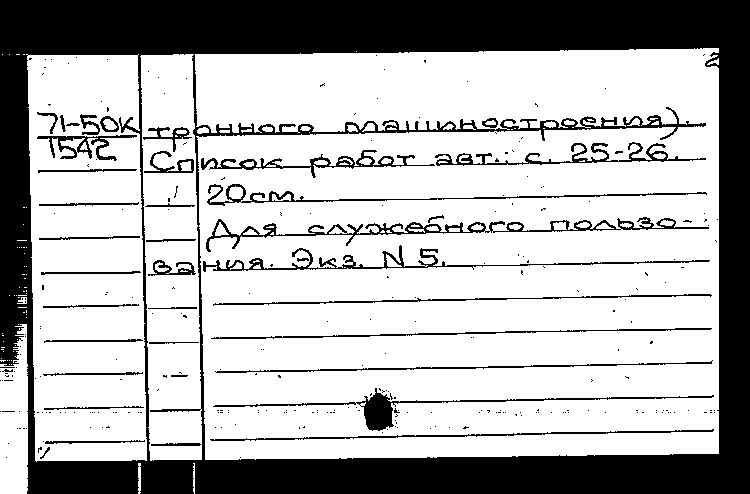 2
71-50к тронного машиностроения).
1542 Список работ авт.: с. 25-26.
20см.
Для служебного пользо-
вания. Экз. N 5.